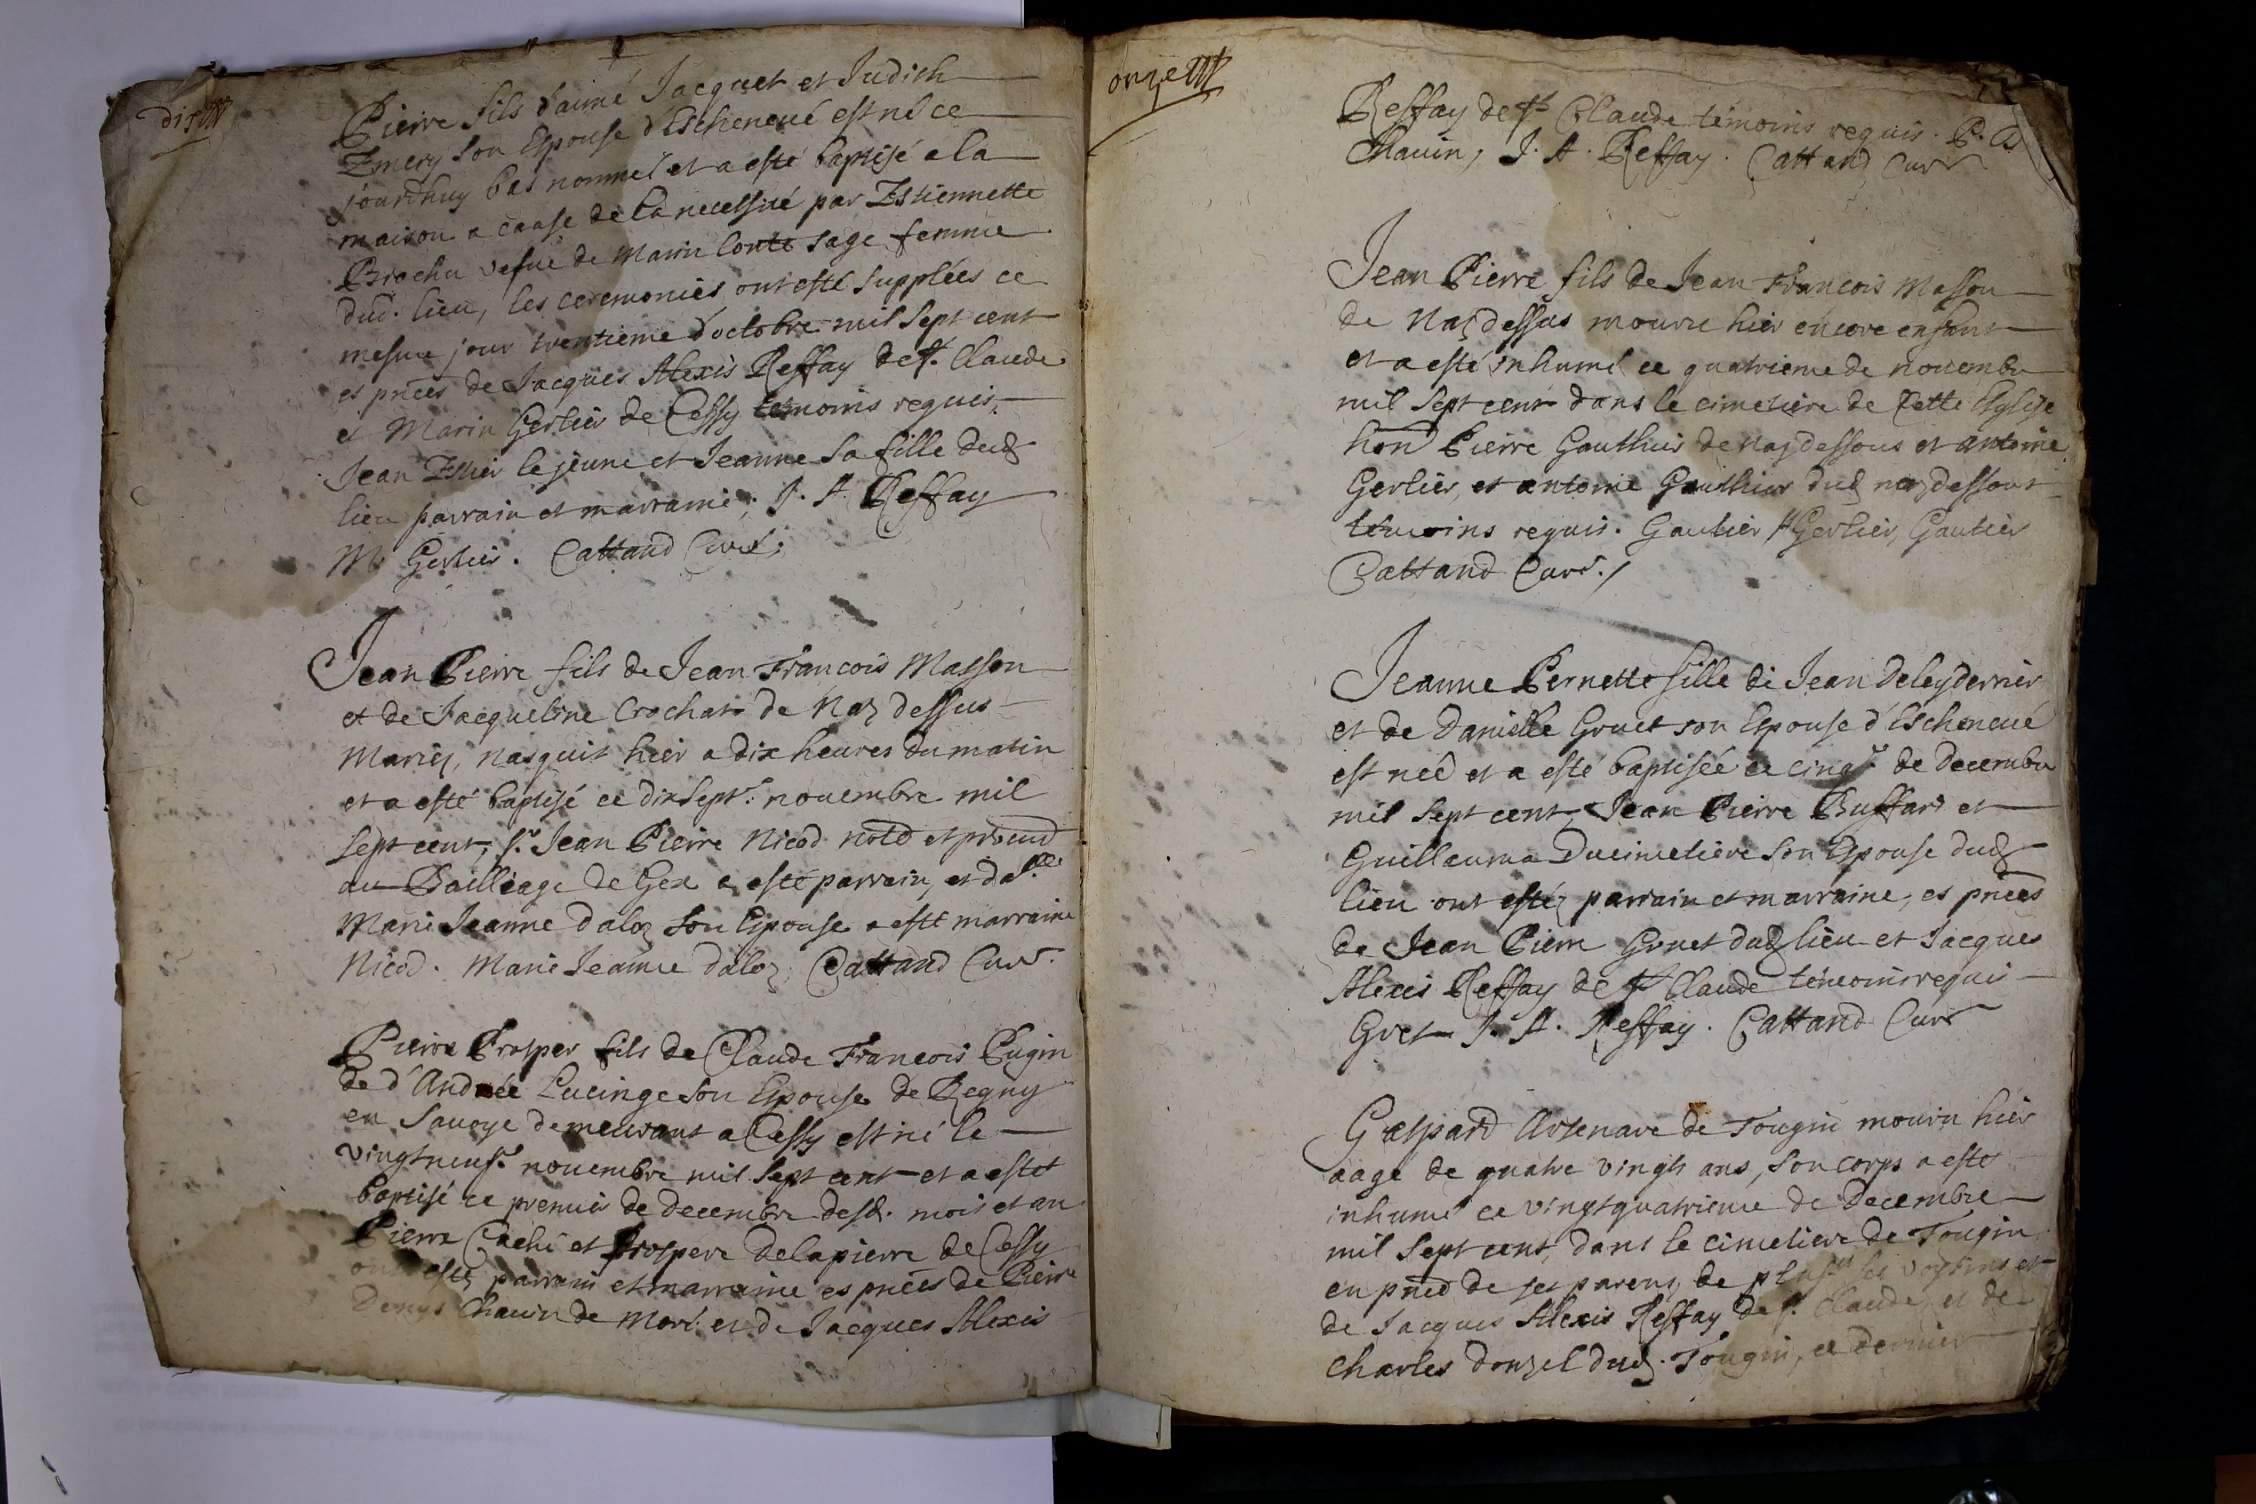 dix
Pierre fils d'aimé Jacquet et Judith
Emery son Espouse d'Escheneué est né ce
jourdhuy bas nommé et a esté baptisé a la
maison a cause de la necessité par Estiennette
Brochu vefue de Marin Conte sage femme
dud. lieu, les ceremonies ont esté supplées ce
mesme jour trentieme d'octobre mil Sept cent
es pnces de Jacques Alexis Reffay de St. Claude
et Marin Gerlier de Cessy témoins requis,
Jean Estier le jeune et Jeanne sa fille dud
lieu parrain et marraine; J. A. Reffay
M. Gerlier. Cattand Curé;
Jean Pierre fils de Jean Francois Masson
et de Jacqueline Crochat de Naz dessus
Mariez, nasquit hier a dix heures du matin
et a esté baptisé ce dix Sept.e nouembre mil
Sept cent, Sr. Jean Pierre Nicod no.re et
au Bailliage de Gex a esté parrain, et
Marie Jeanne daloz son Espouse a esté marraine
Nicod. Marie Jeanne daloz Cattand Curé.
Pierre Prosper fils de Claude Francois Pugin
de d'Andrée Lucinge son Espouse de Regny
en Sauoye demeurant a Cessy est né le
vingtneuf.e nouembre mil Sept cent et a esté
baptisé ce premier de decembre desd. mois et an
Pierre Cachi et Prospere Delapierre de Cessy
ont estéz parrain et marraine es pnces de Pierre
Denys Chauin de Moré et de Jacques Alexis
onze
Reffay de St Claude témoins requis. P. D.
Chauin, J. A. Reffay. Cattand Curé
Jean Pierre fils de Jean Francois Masson
de Naz dessus mouru hier encore enfant
et a esté inhumé ce quatrieme de nouembre
mil Sept cent dans le cimetiere de Cette Esglise
hon Pierre Gauthier de naz dessous et antoine
Gerlier, et antoine Gauthier dud naz dessout
témoins requis. Gautier A Gerlier, Gautier
Cattand Curé./
Jeanne Pernette fille de Jean Deleydernier
et de Danielle Gruet son Espouse d'Escheneué
est née et a esté baptisée ce cinq.e de Decembre
mil Sept cent, Jean Pierre Buffard et
Guillauma Ducimetiere son Espouse dud
lieu ont estéz parrain et marraine, es pnces
de Jean Pierre Gruet dud lieu et Jacques
Alexis Reffay de St Claude témoins requis
Gret J. A. Reffay. Cattand Curé
Gaspard Arsenave de Tougin mouru hier
aagé de quatre vingts ans, son corps a esté
inhumé ce vingtquatrieme de Decembre
mil Sept cent, dans le cimetiere de Tougin
en pnce de ses parens, de plus.rs ses voysins et
de Jacques Alexis Reffay de St. Claude, et de
Charles donzel dud. Tougin, ce dernier